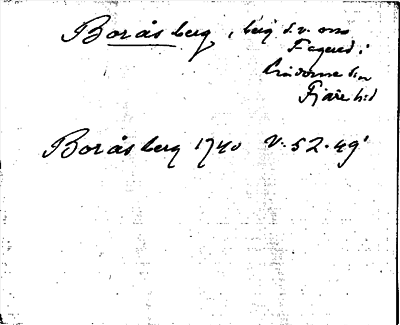 Boråsberg, berg s.v. om
Fagered i
Lindome sn
Fjäre hd
Boråsberg 1740 V. 52. 49'